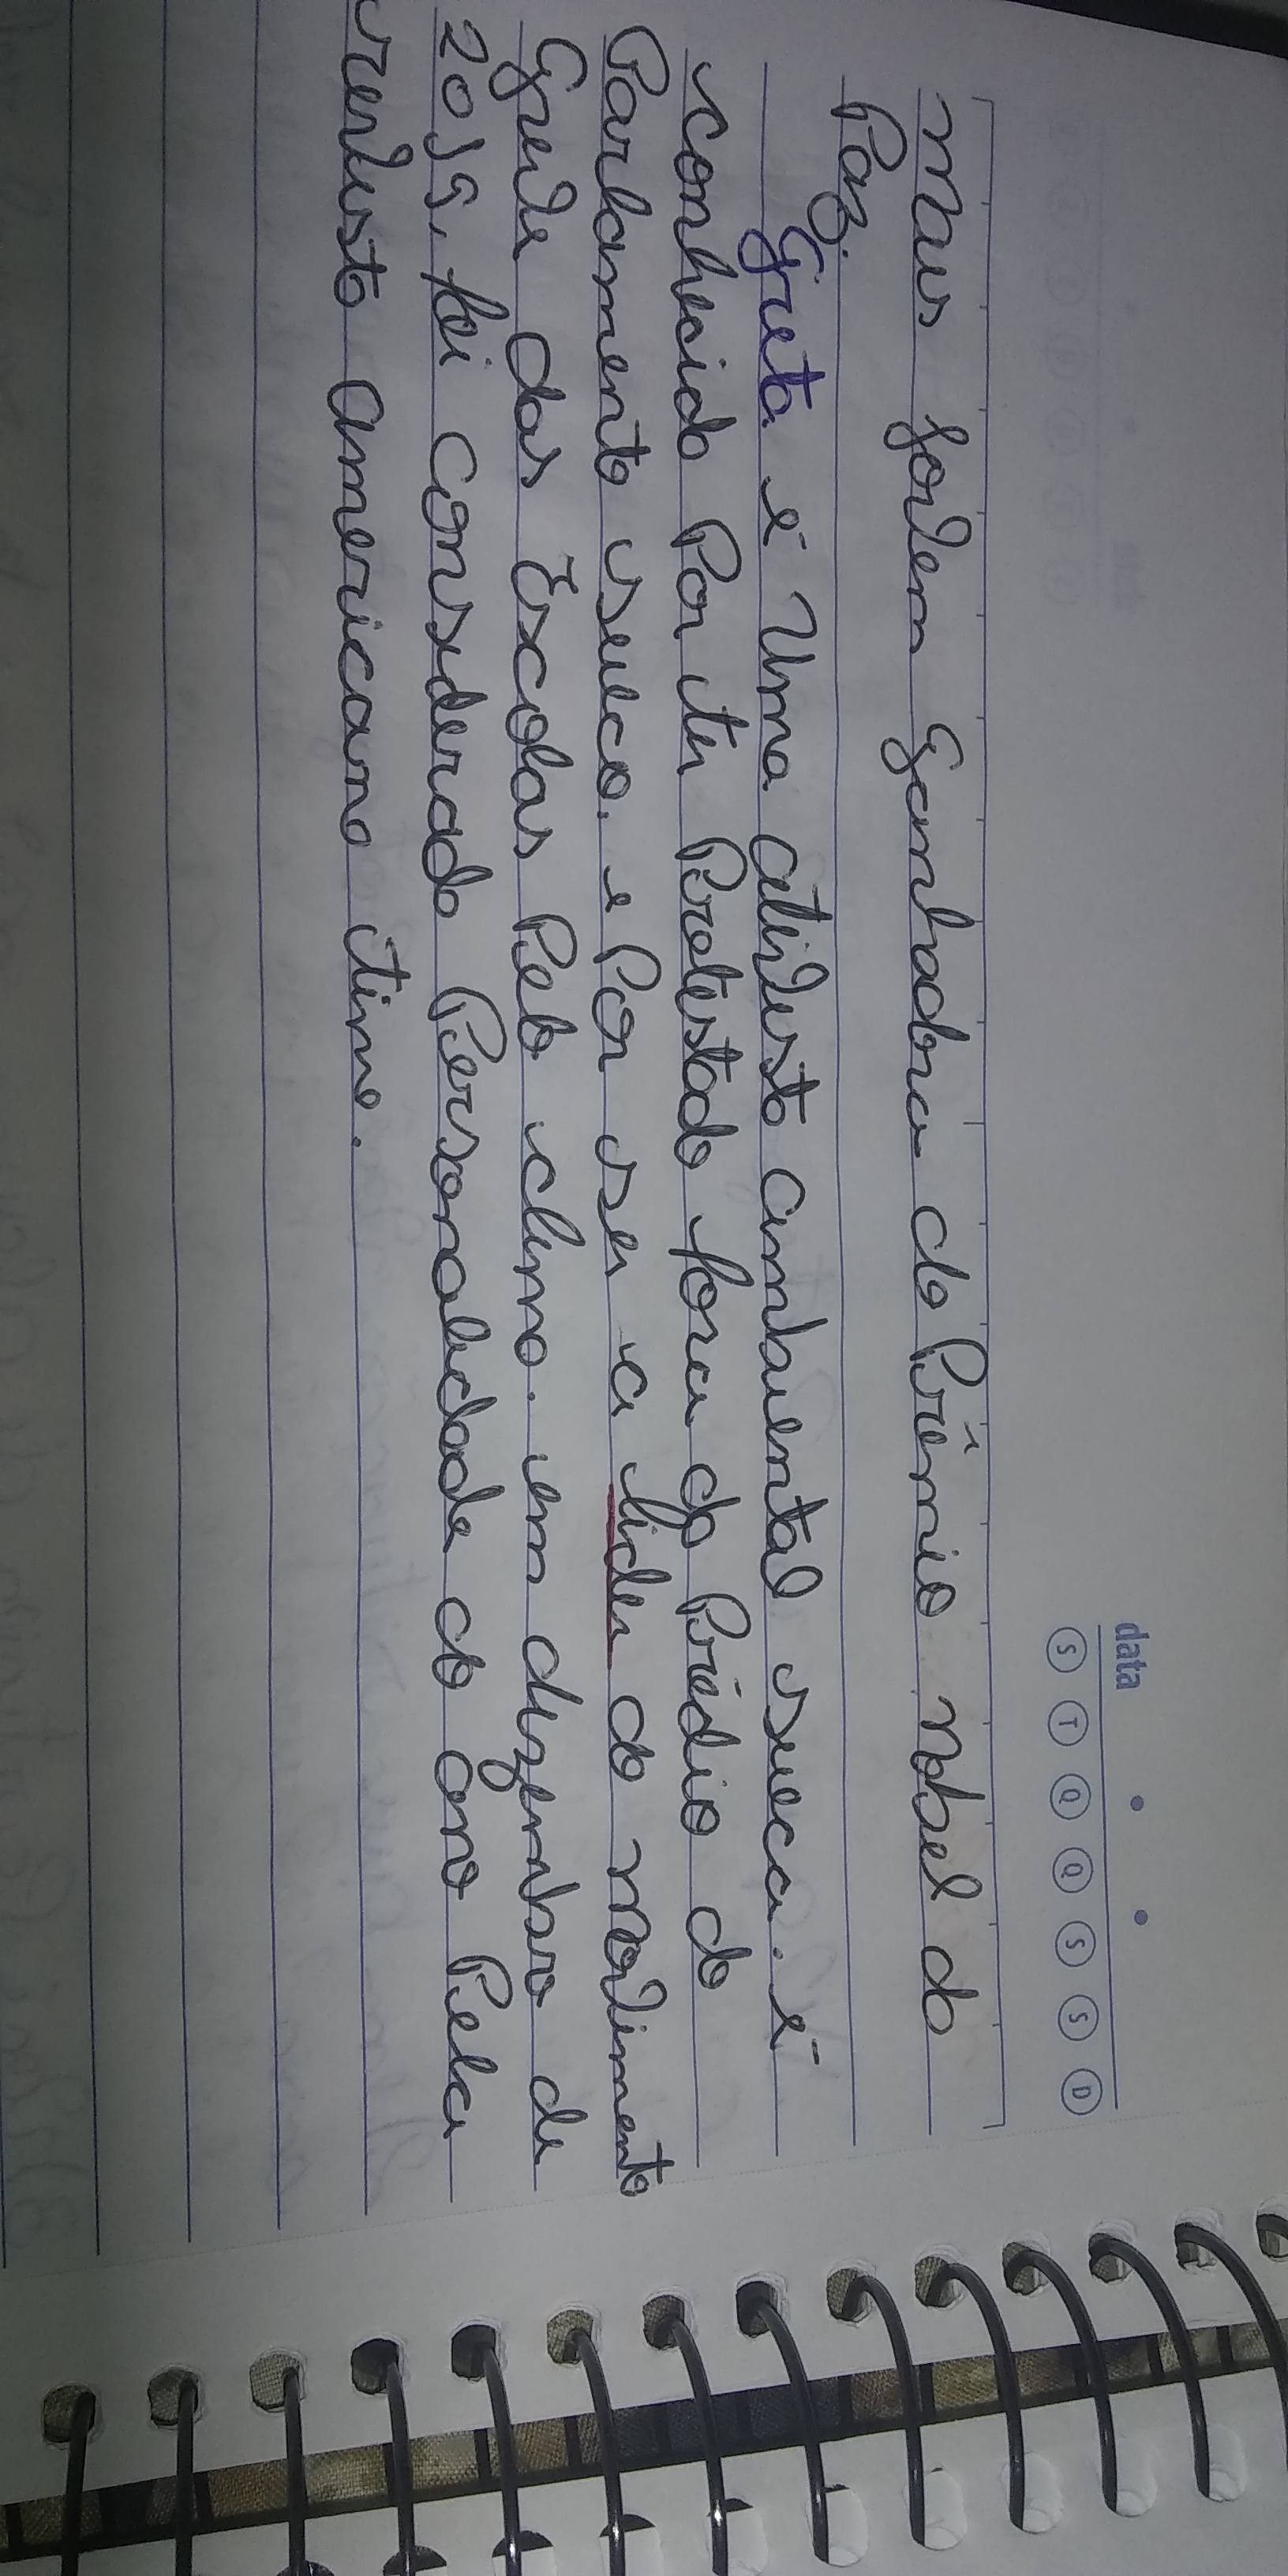 data
S T Q Q S S D
mais jovem ganhadora do Prêmio nobel da
Paz.
Greta é uma ativista ambiental sueca. é
conhecida Por ter Protestado fora do Prédio do
Parlamento sueco. e Por ser a lider do movimento
Greve das Escolas Pelo clima. em dezembro de
2019, foi considerada Personalidade do ano Pela
revista americana time.